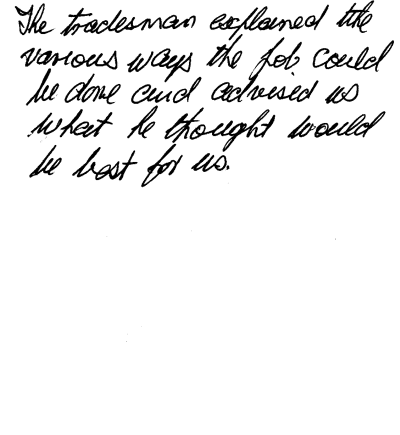 The tradesman explained the
various ways the job could
be done and advised us
what he thought would
be best for us.